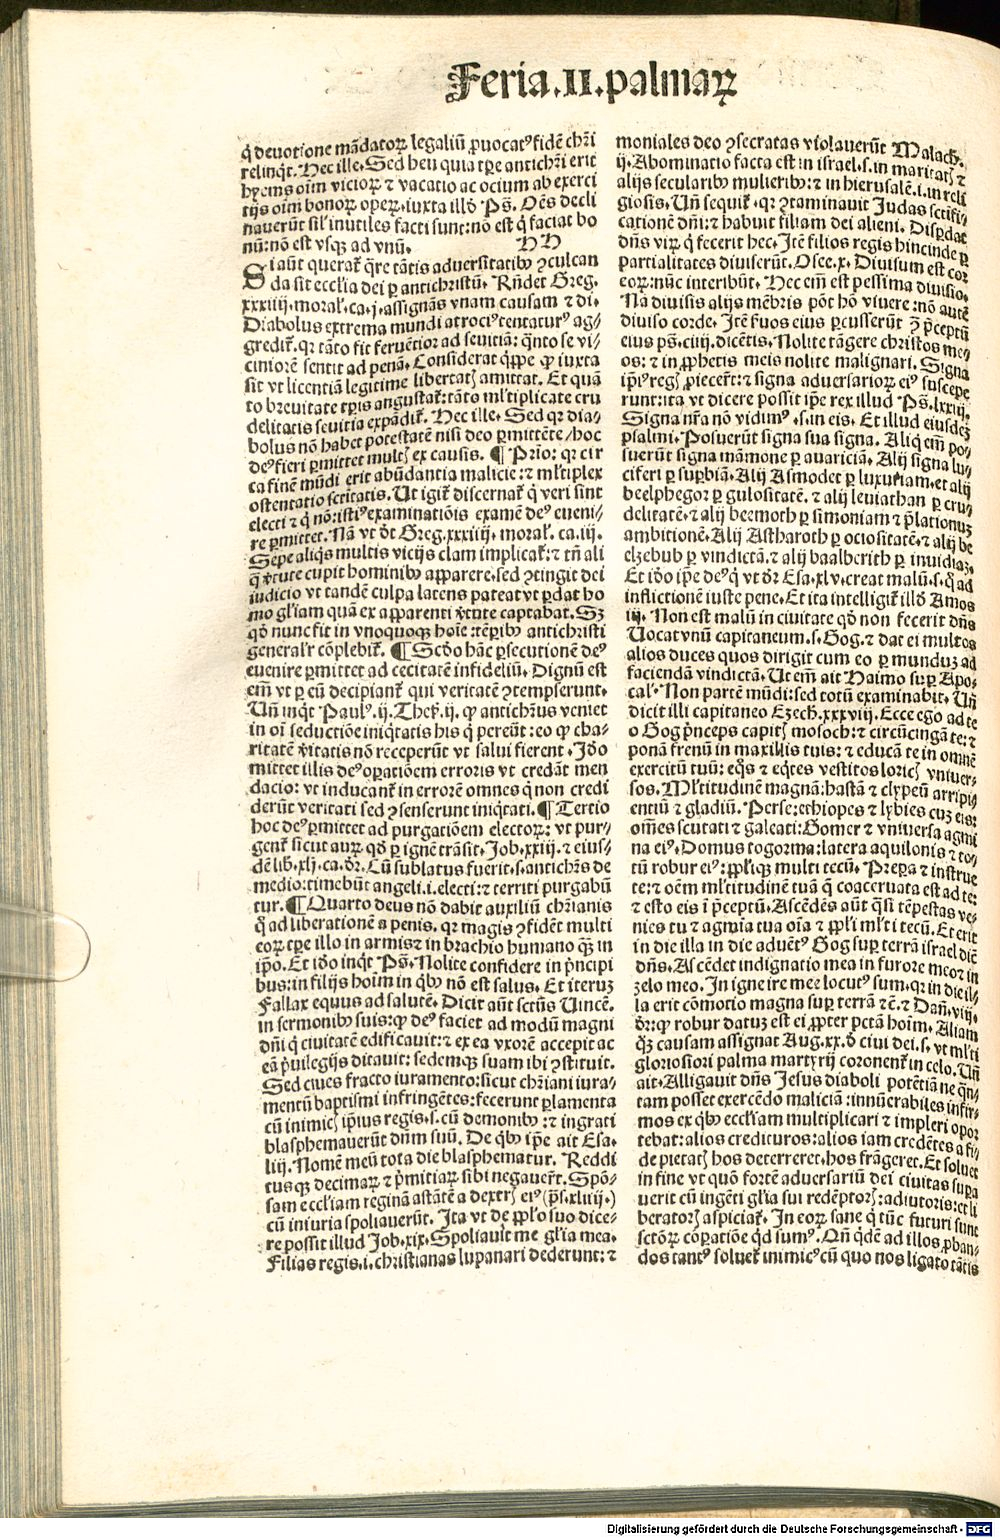 Feria.II.palmaꝝ
q̇ deuotione mādatoꝝ legaliū ꝓuocatꝰ fidē chr̄i
relinq̇t. Hec ille. Sed heu quia tp̄e antichr̄i erit
hyems oīm vicioꝝ ⁊ vacatio ac ocium ab exerci
tijs oīm bonoꝝ opeꝝ. iuxta illđ Pš. Oēs decli
nauerūt sil' inutiles facti sunt: nō est q̇ faciat bo
nū: nō est vsqꝫ ad vnū. HH
Si aūt querať q̄re tātis aduersitatibꝰ ꝯculcan
da sit eccl'ia dei ꝑ antichristū. Rn̄det Greg.
xxxiiij. moral'. ca. j. assignās vnam causam ⁊ di.
Diabolus extrema mundi atrociꝰ tentaturꝰ ag/
gredit̄. qꝛ tāto fit feruētior ad seuitiā: q̄nto se vi/
ciniorē sentit ad penā. Considerat q̇ppe ꝙ iuxta
sit vt licentiā legitime libertatꝭ amittat. Et quā
to breuitate tꝑis angustat̄: tāto ml'tiplicate cru
delitatis seuitia expādit̄. Hec ille. Sed qꝛ dia/
bolus nō habet potestatē nisi deo ꝑmittēte/hoc
deꝰ fieri ꝑmittet multꝭ ex causis. ¶ Prīo: qꝛ cir
ca finē mūdi erit abūdantia malicie: ⁊ ml'tiplex
ostentatio scītitatis. Ut igit̄ discernat̄ q̇ veri sint
electi ⁊ q̇ nō: istiꝰ examinatiōis examē deꝰ eueni/
re ꝑmittet. Nā vt dt̄ Greg. xxxiiij. moral'. ca. iij.
Sepe aliq̇s multis vicijs clam implicat̄: ⁊ tn̄ ali
q̄ v̄tute cupit hominibꝰ apparere. sed ꝯtingit dei
iudicio vt tandē culpa latens pateat vt ꝑdat ho
mo gl'iam quā ex apparenti v̄tute captabat. Sꝫ
qđ nunc fit in vnoquoqꝫ hoīe: tēpibꝰ antichristi
general'r cōplebit̄. ¶ Scđo hāc ꝑsecutionē deꝰ
euenire ꝑmittet ad cecitatē infideliū. Dignū est
em̄ vt ꝑ eū decipiant̄ qui veritatē ꝯtempserunt.
Un̄ inq̇t Paulꝰ. ij. Thes̄. ij. ꝙ antichr̄us veniet
in oī seductiōe iniq̇tatis his q̇ pereūt: eo ꝙ cha/
ritatē v̄itatis nō receperūt vt salui fierent. Iđo
mittet illis deꝰ opatiōem erroris vt credāt men
dacio: vt inducant̄ in errorē omnes q̇ non credi
derūt veritati sed ꝯsenserunt iniq̇tati. ¶ Tertio
hoc deꝰ ꝑmittet ad purgatiōem electoꝝ: vt pur/
gent̄ sicut auꝝ qđ ꝑ ignē trāsit. Job. xxiij. ⁊ eius/
dē lib̄. xlj. ca. dr̄. Cū sublatus fuerit. s. antichr̄s de
medio: timebūt angeli. i. electi: ⁊ territi purgabū
tur. ¶ Quarto deus nō dabit auxiliū chr̄ianis
q̇ ad liberationē a penis. qꝛ magis ꝯfidēt multi
eoꝝ tp̄e illo in armis ⁊ in brachio humano q̄ꝫ in
ip̄o. Et iđo inq̇t Pš. Nolite confidere in p̄ncipi
bus: in filijs hoīm in q̇bꝰ nō est salus. Et iteruꝫ
Fallax equus ad salutē. Dicit aūt sctūs Uincē.
in sermonibꝰ suis: ꝙ deꝰ faciet ad modū magni
dn̄i q̇ ciuitatē edificauit: ⁊ ex ea vxorē accepit ac
eā p̄uilegijs ditauit: sedemqꝫ suam ibi ꝯstituit.
Sed ciues fracto iuramento: sicut chr̄iani iura/
mentū baptismi infringētes: fecerunt ꝑlamenta
cū inimicꝭ ip̄ius regis. s. cū demonibꝰ: ⁊ ingrati
blasphemauerūt dn̄m suū. De q̇bꝰ ip̄e ait Esa.
liij. Nomē meū tota die blasphematur. Reddi
tusqꝫ decimaꝝ ⁊ p̄mitiaꝝ sibi negauer̄t. Spō/
sam eccl'iam reginā astātē a dextrꝭ eiꝰ (ps̄. xliiij.)
cū iniuria spoliauerūt. Ita vt de ꝓpl'o suo dice/
re possit illud Job. xix. Spoliauit me gl'ia mea.
Filias regis. i. christianas lupanari dederunt: ⁊
moniales deo ꝯsecratas violauerūt Malach̄.
ij. Abominatio facta est: in israel. s. in maritatꝭ ⁊
alijs secularibꝰ mulieribꝰ: ⁊ in hierusalē. i. in reli
giosis. Un̄ sequit̄. qꝛ ꝯtaminauit Judas sctīfi/
cationē dn̄i: ⁊ habuit filiam dei alieni. Disꝑdat
dn̄s viꝝ q̇ fecerit hec. Itē filios regis hincinde ꝑ
partialitates diuiserūt. Osee. x. Diuisum est cor
eoꝝ: nūc interibūt. Hec em̄ est pessima diuisio.
Nā diuisis alijs mēbris pōt hō viuere: nō autē
diuiso corde. Itē ẜuos eius ꝑcusserūt ꝯ̄ p̄ceptū
eius pš. ciiij. dicētis. Nolite tāgere christos me/
os: ⁊ in ꝓphetis meis nolite malignari. Signa
ip̄iꝰ regꝭ ꝓiecer̄t: ⁊ signa aduersarioꝝ eiꝰ suscepe
runt: ita vt dicere possit ip̄e rex illud Pš. lxxiij.
Signa nr̄a nō vidimꝰ. s. in eis. Et illud eiusdeꝫ
psalmi. Posuerūt signa sua signa. Aliq̇ em̄ po/
suerūt signa māmone ꝑ auariciā. Alij signa lu/
ciferi ꝑ suꝑbiā. Alij Asmodei ꝑ luxuriam. et alij
beelphegor ꝑ gulositatē. ⁊ alij leuiathan ꝑ cru/
delitatē. ⁊ alij beemoth ꝑ simoniam ⁊ p̄lationuꝫ
ambitionē. Alij Astharoth ꝑ ociositatē. ⁊ alij be
elzebub ꝑ vindictā. ⁊ alij baalberith ꝑ inuidiaꝫ.
Et iđo ip̄e deꝰ q̇ vt dr̄ Esa. xlv. creat malū. s. q̇ ad
inflictionē iuste pene. Et ita intelligit̄ illđ Amos
iij. Non est malū in ciuitate qđ non fecerit dn̄s
Uocat vnū capitaneum. s. Gog. ⁊ dat ei multos
alios duces quos dirigit cum eo ꝑ munduꝫ ad
faciendā vindictā. Ut em̄ ait Haimo suꝑ Apo/
cal'. Non partē mūdi: sed totū examinabit. Un̄
dicit illi capitaneo Ezech̄. xxxviij. Ecce ego ad te
o Gog p̄nceps capitꝭ mosoch: ⁊ circūcingā te: ⁊
ponā frenū in maxillis tuis: ⁊ educā te in omnē
exercitū tuū: eq̇s ⁊ eq̇tes vestitos loricꝭ vniuer/
sos. Ml'titudinē magnā: hastā ⁊ clypeū arripi/
entiū ⁊ gladiū. Perse: ethiopes ⁊ lybies cuꝫ eis:
om̄es scutati ⁊ galeati: Gomer ⁊ vniuersa agmi
na eiꝰ. Domus togorma: latera aquilonis ⁊ to/
tū robur eiꝰ: ꝓpl'iqꝫ multi tecū. Prepa ⁊ instrue
te: ⁊ oēm ml'titudinē tuā q̄ coaceruata est ad te:
⁊ esto eis ī p̄ceptū. Ascēdēs aūt q̄si tēpestas ve/
nies tu ⁊ agmīa tua oīa ⁊ ꝓpl'i ml'ti tecū. Et erit
in die illa in die aduētꝰ Gog suꝑ terrā israel diē
dn̄s. Ascēdet indignatio mea in furore meo: ⁊ in
zelo meo. In igne ire mee locutꝰ sum. qꝛ in die il/
la erit cōmotio magna suꝑ terrā ⁊c̄. ⁊ Dan̄. viij.
dr̄: ꝙ robur datuꝫ est ei ꝓpter pctā hoīm. Aliam
q̄ꝫ causam assignat Aug. xx. đ ciui dei. s. vt ml'ti
gloriosiori palma martyrij coronent̄ in celo. Un̄
ait. Alligauit dn̄s Jesus diaboli potētiā ne q̄n/
tam posset exercēdo maliciā: innūerabiles infir/
mos ex q̇bꝰ eccl'iam multiplicari ⁊ impleri opor
tebat: alios credituros: alios iam credētes a fi/
de pietatꝭ hos deterreret. hos frāgeret. Et soluet
in fine vt quō fortē aduersariū dei ciuitas supa
uerit cū ingēti gl'ia sui redēptorꝭ: adiutoris: et li
beratorꝭ aspiciat̄. In eoꝝ sane q̇ tūc futuri sunt
sctōꝝ cōpatiōe q̇d sumꝰ. Qn̄ q̇dē ad illos ꝓban/
dos tantꝰ soluet̄ inimicꝰ cū quo nos ligato tātis
Digitalisierung gefördert durch die Deutsche Forschungsgemeinschaft - DFG